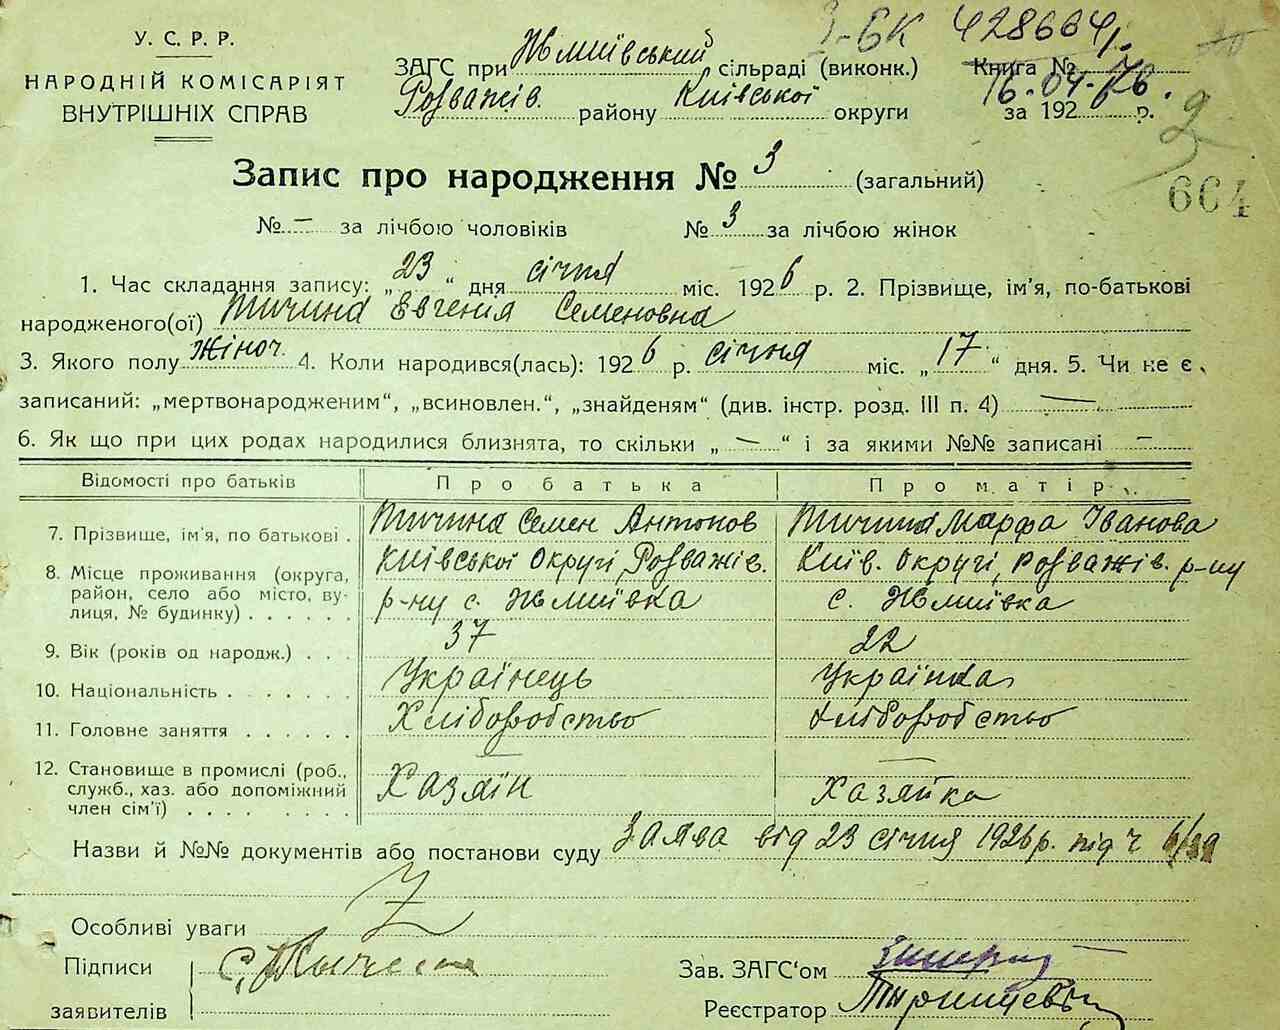 У. С. Р. Р.
НАРОДНІЙ КОМІСАРІЯТ
ВНУТРІШНІХ СПРАВ
З-БК 428664
ЗАГС при Жмиївський сільраді (виконк.) Книга №
16.04.76.
Розважів. району Київської округи за 1926 р.
2
664
Запис про народження № 3 (загальний)
№ — за лічбою чоловіків № 3 за лічбою жінок
1. Час складання запису: „23“ дня січня міс. 1926 р. 2. Прізвище, ім’я, по-батькові
народженого(ої) Тичина Евгенія Семеновна
3. Якого полу жіноч. 4. Коли народився(лась): 1926 р. січня міс. „17“ дня. 5. Чи не є
записаний: „мертвонародженим“, „всиновлен.“, „знайденям“ (див. інстр. розд. III п. 4) —
6. Як що при цих родах народилися близнята, то скільки „—“ і за якими №№ записані —
Відомості про батьків Про батька Про матір
7. Прізвище, ім’я, по батькові . Тичина Семен Антонов Тичина Марфа Іванова
8. Місце проживання (округа, район, село або місто, вулиця, № будинку) . . . . . . Київської Округі, Розважів. р-ну с. Жмиївка Київ. Округі, Розважів. р-ну с. Жмиївка
9. Вік (років од народж.) . . . 37 22
10. Національність . . . . . . . Українець Українка
11. Головне заняття . . . . . . Хліборобство Хліборобство
12. Становище в промислі (роб., служб., хаз. або допоміжний член сім’ї) . . . . . . . Хазяїн Хазяйка
Назви й №№ документів або постанови суду Заява від 23 січня 1926 р. під ч
Особливі уваги
Підписи
заявителів
Зав. ЗАГС‘ом
Реєстратор